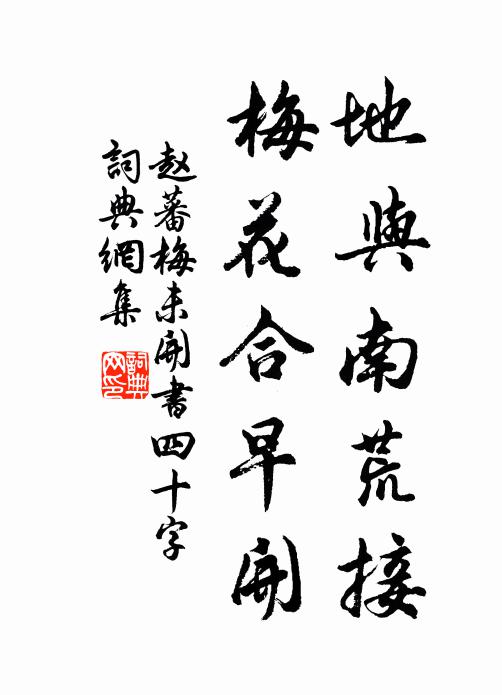 地與南荒接
梅花合早開
赵蕃梅未開書四十字
詞典網集
詞典
网印